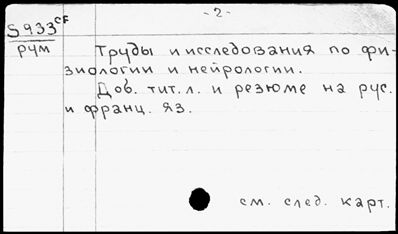 -2-
S933 CF
рум
Труды и исследования по фи-
зиологии и нейрологии.
Доб. тит. л. и резюме на рус.
и франц. яз.
см. след. карт.